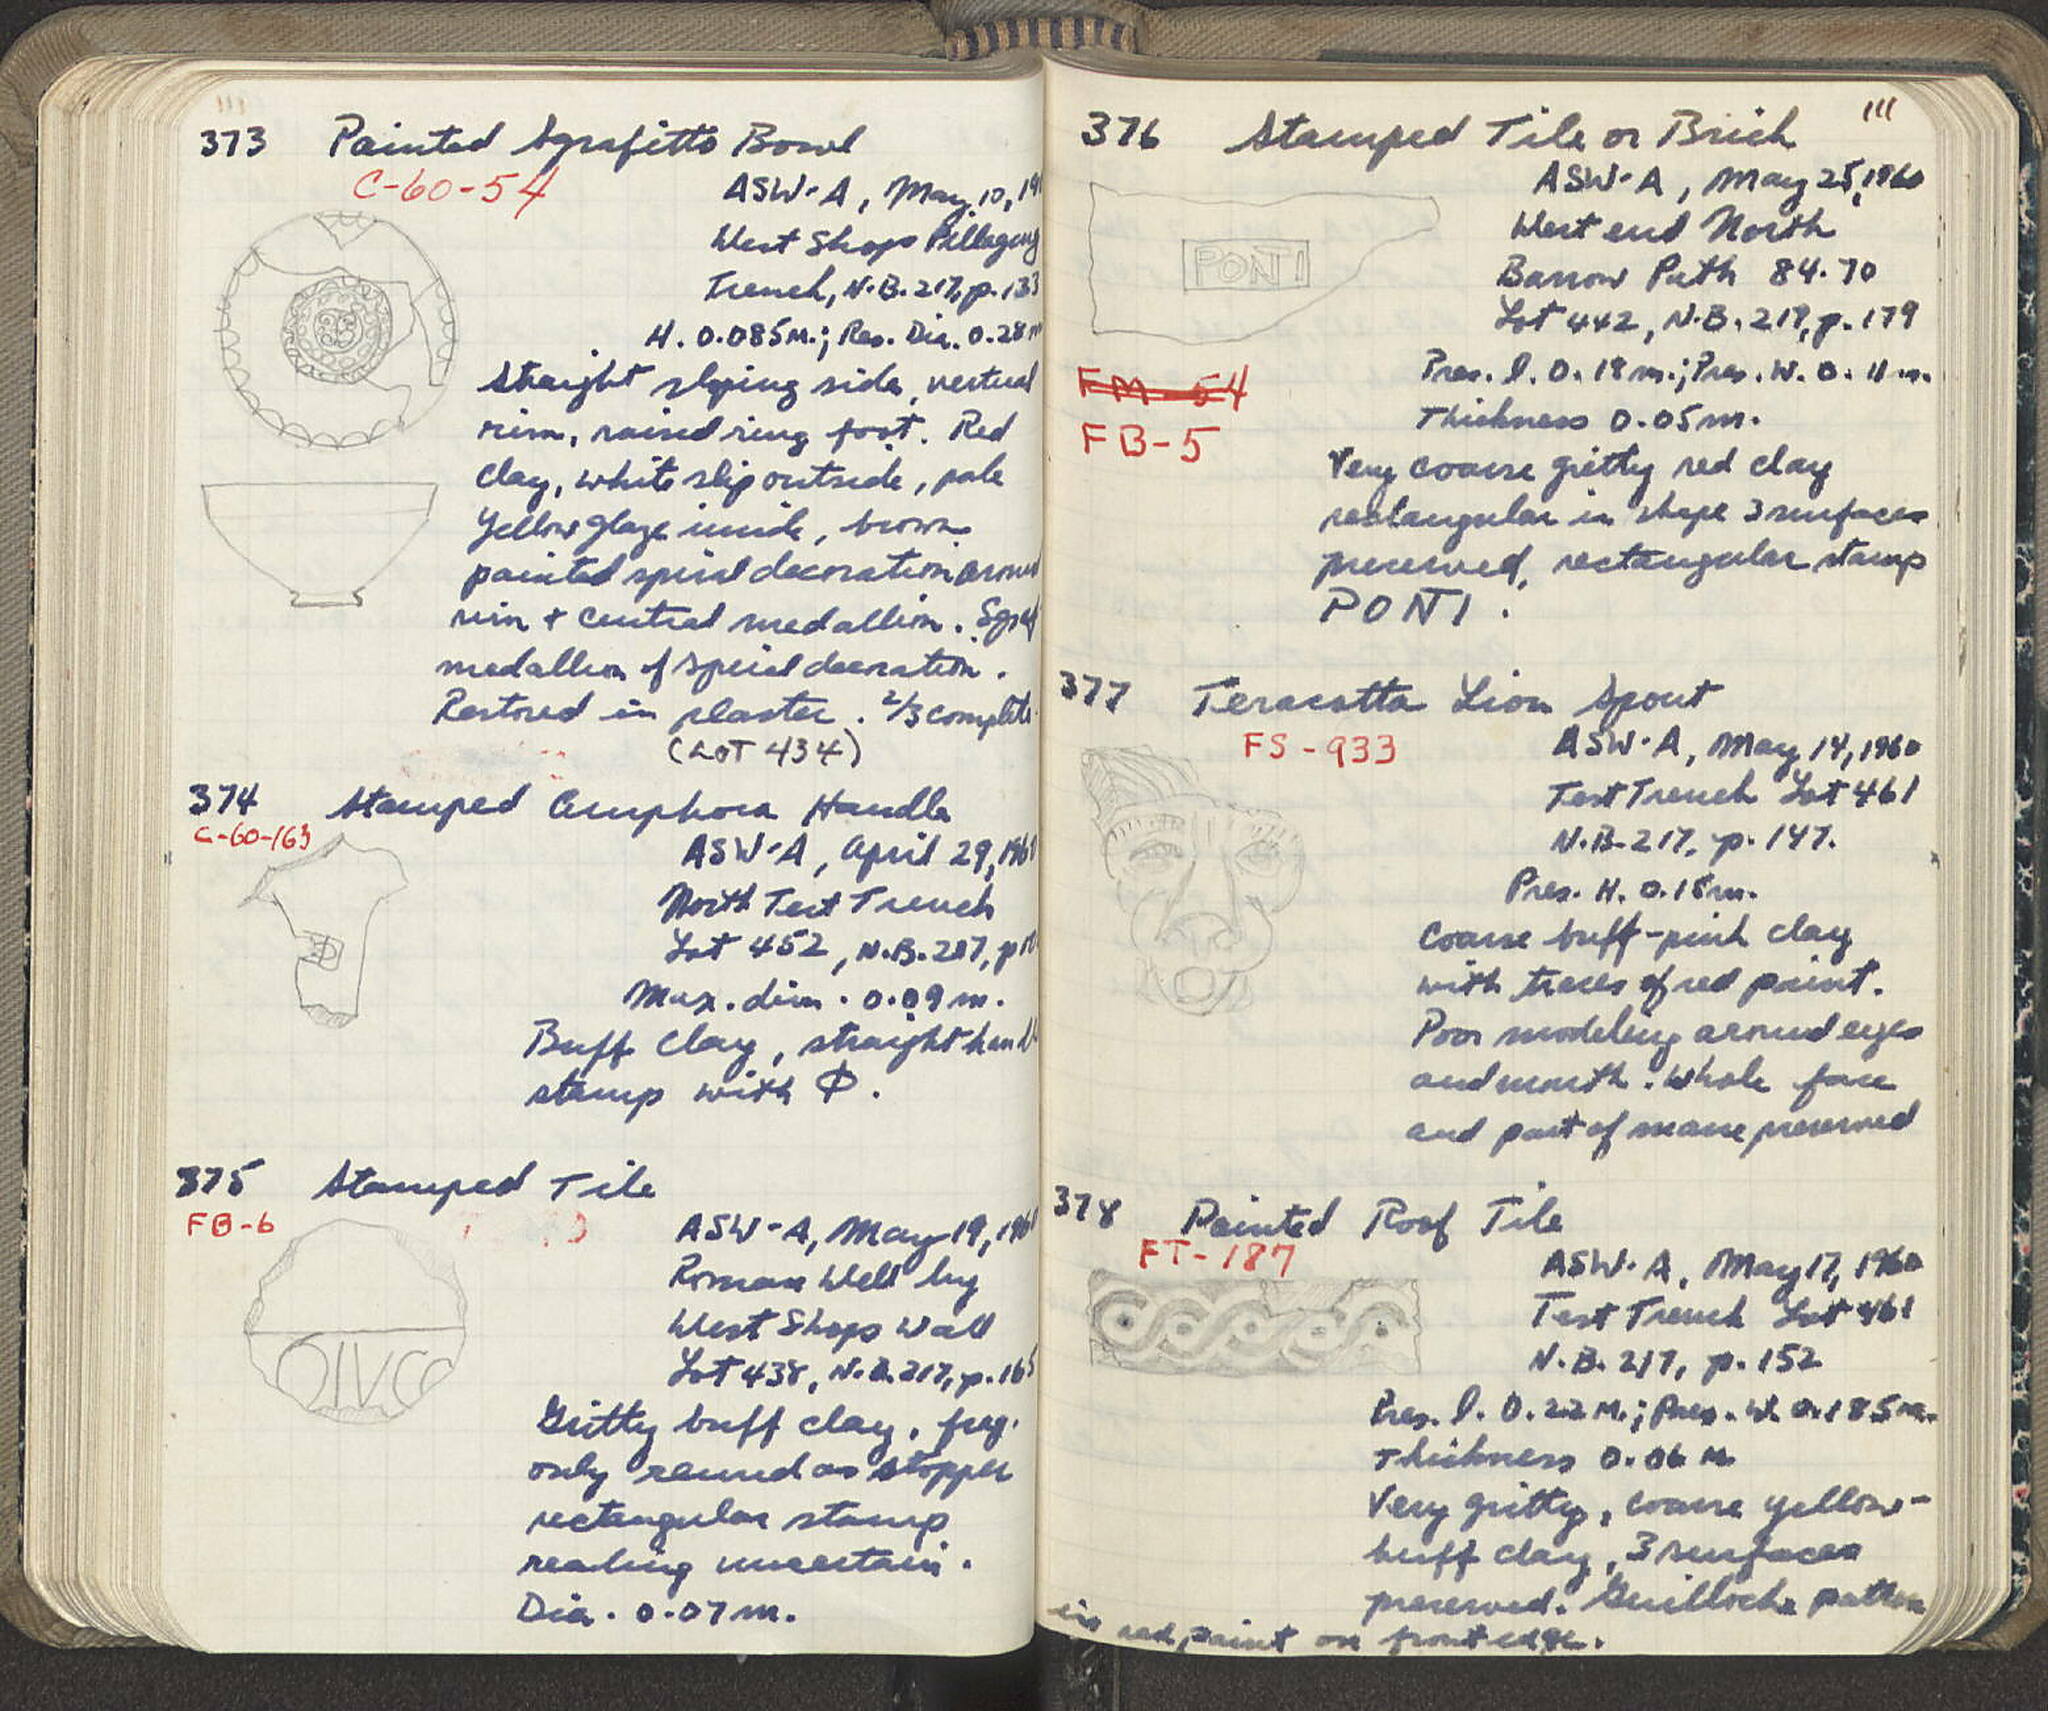 373 Painted Sgrafitto Bowl
C-60-54
ASW-A, May 10, 19
West Shops Pillaging
Trench, N.B. 217, p. 133
H. 0.085 M.; Res. Dia. 0.28 m
Straight sloping side, vertical
rim, raised ring foot. Red
clay, white slip outside, pale
yellow glaze inside, brown
painted spiral decoration around
rim + central medallion. Sgraf
medallion of spiral decoration.
Restored in plaster. 2/3 complete.
(LOT 434)
374 Stamped Amphora Handle
C-60-163
ASW-A, April 29, 1960
North Test Trench
Lot 452, N.B. 217, p
Max. dim. 0.09 m.
Buff Clay, straight handle
stamp with Φ.
375 Stamped Tile
FB-6
ASW-A, May 19, 1960
Roman Well by
West Shops Wall
Lot 438, N.B. 217, p. 165
OIVCO
Gritty buff clay, frag.
only reused as stopper
rectangular stamp
reading uncertain.
Dia. 0.07 m.
111
376 Stamped Tile or Brick
ASW-A, May 25, 1960
West end North
Barrow Path 84.70
Lot 442, N.B. 217, p. 179
PONTI
Pres. l. 0.19 m.; Pres. W. 0.11 m.
Thickness 0.05 m.
FM-54
FB-5
Very coarse gritty red clay
rectangular in shape 3 surfaces
preserved, rectangular stamp
PONTI.
377 Teracotta Lion Spout
FS-933
ASW-A, May 14, 1960
Test Trench Lot 461
N.B. 217, p. 147.
Pres. H. 0.18 m.
Coarse buff-pink clay
with traces of red paint.
Poor modeling around eyes
and mouth. Whole face
and part of mane preserved
378 Painted Roof Tile
FT-187
ASW-A, May 17, 1960
Test Trench Lot 461
N.B. 217, p. 152
Pres. l. 0.22 M.; Pres. W. 0.185 m.
Thickness 0.06 M.
Very gritty, coarse yellow-
buff clay, 3 surfaces
preserved. Guilloche pattern
in red paint on front edge.